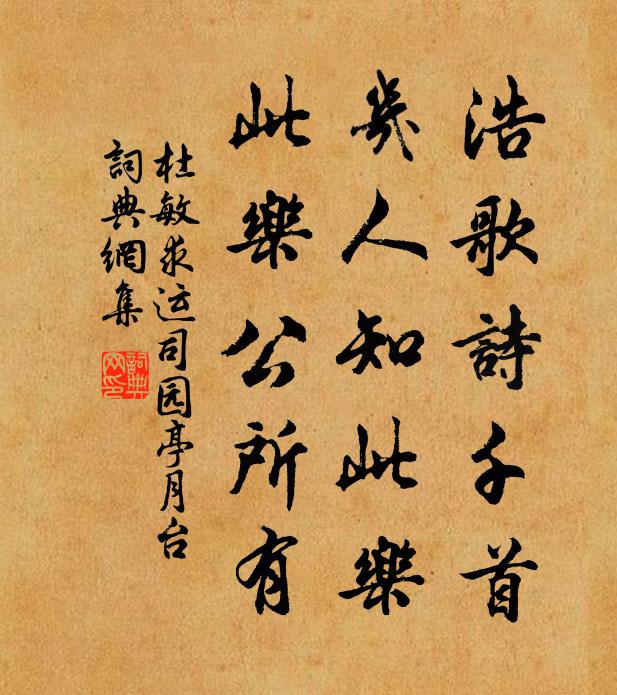 浩歌詩千首
幾人知此樂
此樂公所有
杜敏求运司园亭月台
詞典網集
詞典網印